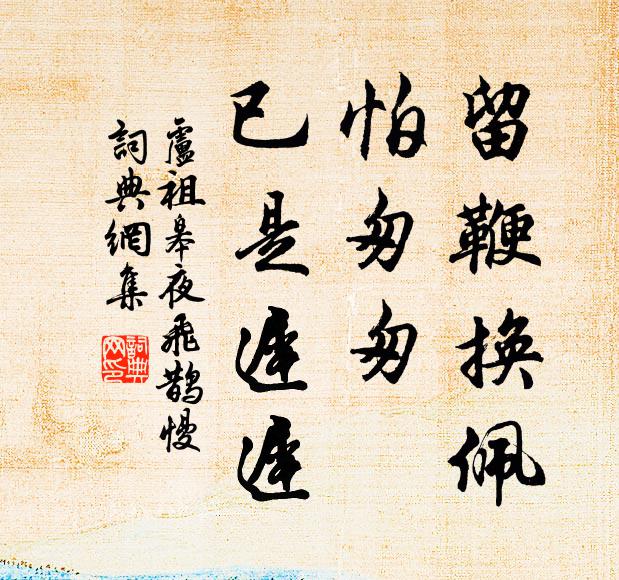 留鞭換佩
怕匆匆
已是遲遲
盧祖皋夜飛鵲慢
詞典網集
詞典網印